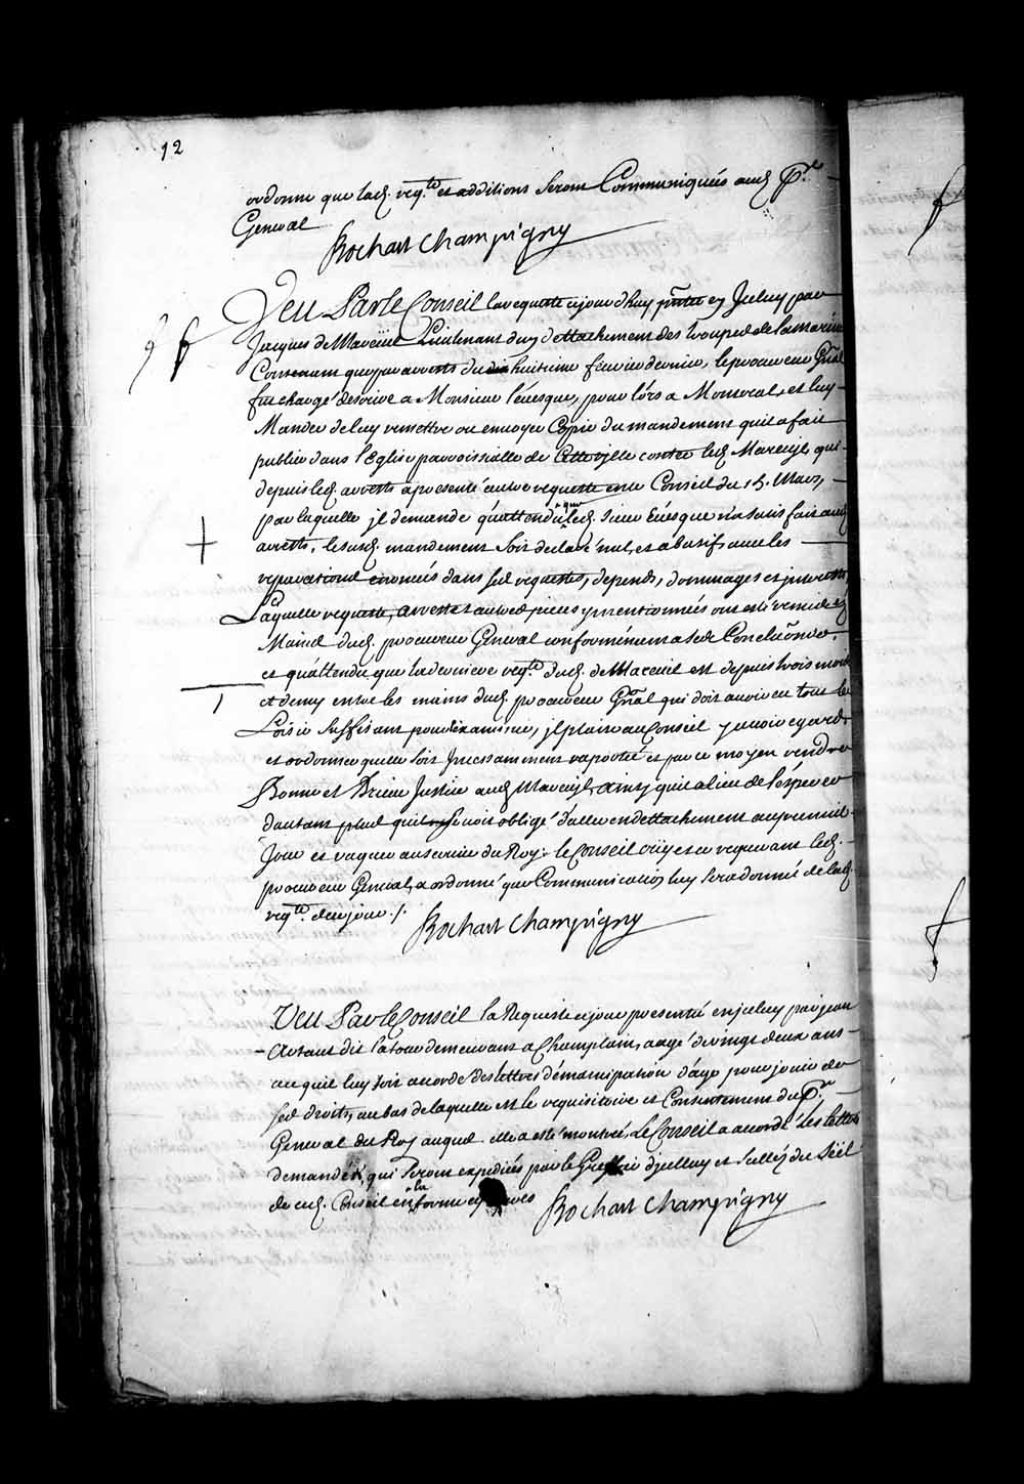 12
ordonne que lad. reqte. et additions seront Communiquées aud. Pr.
General
Bochart Champigny
Veu Par le Conseil la requeste cejourd'huy pntée en Iceluy par
Jacques de Mareüil Lieutenant d'un dettachement des trouppes de la marine
Contenant que par arrests du dix huitieme fevrier dernier, le procureur Gnal
fut chargé d'escrire a Monsieur l'évesque, pour lors a Monreal, et luy
Mander de luy remettre ou envoyer Copie du mandement qu'il a fait
publier dans l'Eglise parroissialle de Cette ville contre led. Mareüil, que
depuis led. arrests a presenté autre requeste en ce Conseil du 15. Mars,
par laquelle jl demande qu'attendu que led. sieur Evesque n'a satisfait aud.
arrests, le susd. mandement soit declaré nul, et abusif, avec les
reparations enoncées dans ses requestes, depends, dommages et jnterests
Laquelle requeste, arrests et autres pieces y mentionnées ont esté remises ez
Mains dud. procureur General conformément a ses Conclusions.
et qu'attendu que la derniere reqte. dud. de Mareuil est depuis trois mois
et demy entre les mains dud. procureur Gnal qui doit avoir eu tout le
Loisir suffisant pour l'examiner, jl plaise au Conseil y avoir egard,
et ordonner qu'elle soit Jncessamment raportée et par ce moyen rendre
Bonne et Brieve Justice aud. Mareüil, ainsy qu'il a lieu de l'esperer
d'autant plus qu'il seroit obligé d'aller en dettachement au premier
Jour et vaquer au service du Roy: le Conseil oüy et ce requerant led.
procureur General, a ordonné que Communication luy sera donnée de lad.
reqte. de ce jour ./.
Bochart Champigny
Veu Par le Conseil la Requeste ce jour presentée en jceluy par jean
Arcouet dit la jour demeurant a Champlain, aagé de vingt deux ans
a ce qu'il luy soit accordé des lettres d'émancipation d'âge pour jouir de
ses droits, au bas de laquelle est le requisitoire et Consentement du Pr.
General du Roy auquel elle a esté montrée, Le Conseil a accordé les lettres
demandées, qui seront expediées par le Greffier d'jcelluy et sellées du Séel
de ced. Conseil en la forme
Bochart Champigny